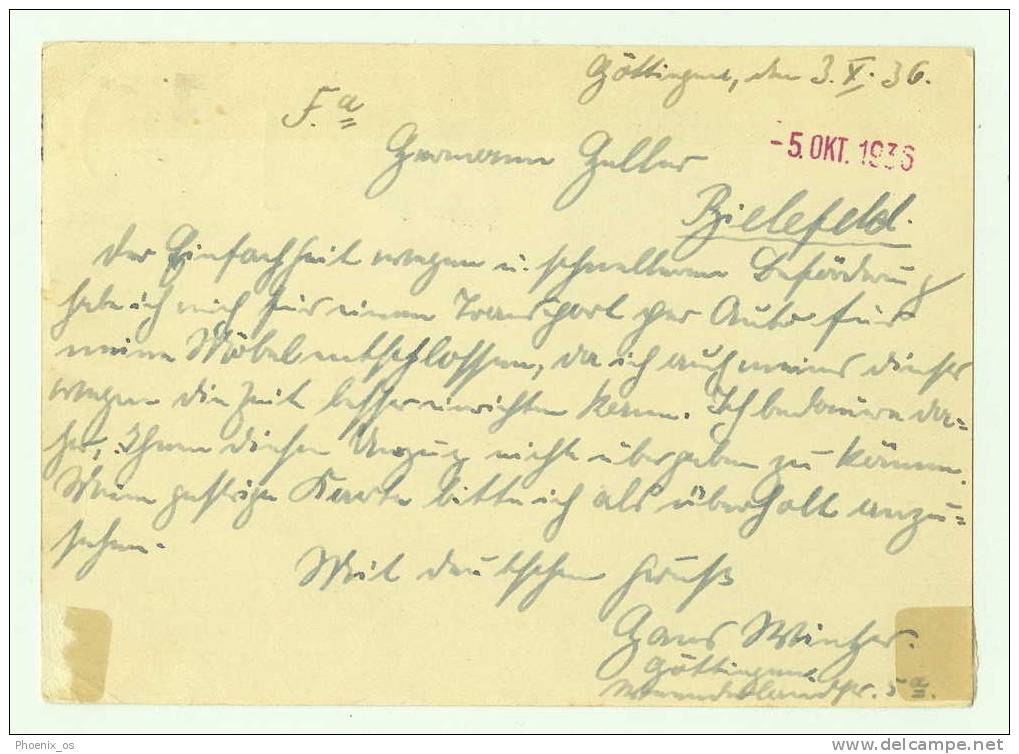 Göttingen, den 3.X.36.
F.a
Hermann Heller
-5. OKT. 1936
Bielefeld.
Der Einfachheit wegen u. schnelleren Beförderung
habe ich mich für einen Transport per Auto für
meine Möbel entschlossen, da ich auch meines Dienstes
wegen die Zeit besser einrichten kann. Ich bedauere da=
her, Ihnen diesen Umzug nicht übergeben zu können.
Meine gestrige Karte bitte ich als überholt anzu=
sehen.
Mit deutschem Gruß
Hans Winter.
Göttingen
Weenderlandstr. 5a.
Phoenix_os
www.delcampe.net